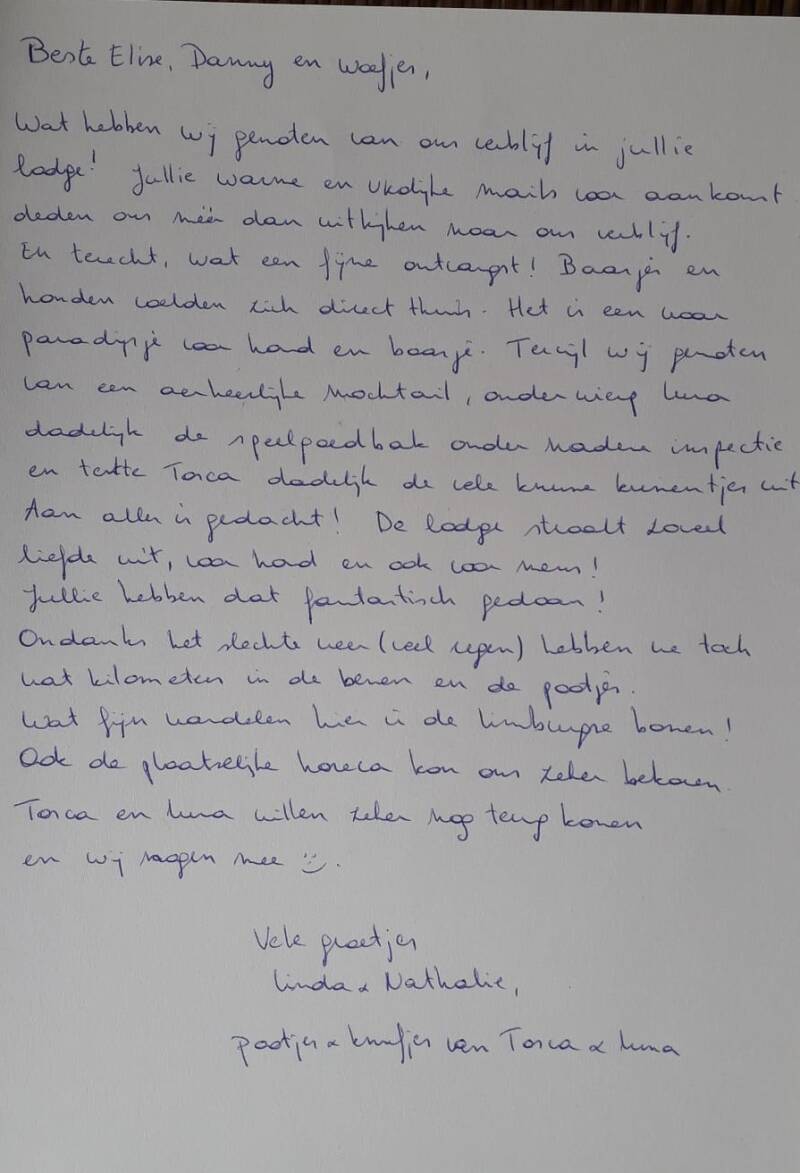 Beste Elise, Danny en woefjes,
Wat hebben wij genoten van ons verblijf in jullie
lodge! Jullie warme en vrolijke mails voor aankomst
deden ons méér dan uitkijken naar ons verblijf.
En terecht, wat een fijne ontvangst! Baasjes en
honden voelden zich direct thuis. Het is een waar
paradijsje voor hond en baasje. Terwijl wij genoten
van een overheerlijke mocktail, onderwierp Luna
dadelijk de speelgoedbak onder nadere inspectie
en testte Tosca dadelijk de vele knusse kussentjes uit
Aan alles is gedacht! De lodge straalt zoveel
liefde uit, voor hond en ook voor mens!
Jullie hebben dat fantastisch gedaan!
Ondanks het slechte weer (veel regen) hebben we toch
wat kilometers in de benen en de pootjes.
Wat fijn wandelen hier in de Limburgse bossen!
Ook de plaatselijke horeca kon ons zeker bekoren.
Tosca en Luna willen zeker nog terug komen
en wij mogen mee :).
Vele groetjes
Linda & Nathalie,
pootjes & knuffjes van Tosca & Luna